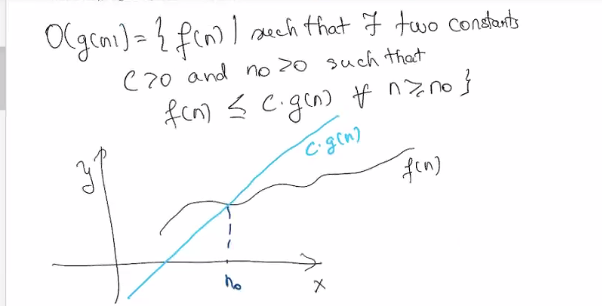 O(g(n)) = { f(n) | such that ∃ two constants
C>0 and n₀ ≥0 such that
f(n) ≤ C·g(n) ∀ n≥n₀ }
c·g(n)
y
f(n)
n₀
x